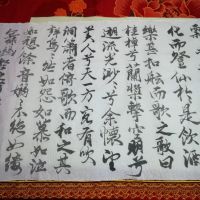 化而登仙於是飲酒
樂甚扣舷而歌之歌曰
桂棹兮蘭槳擊空明兮
溯流光渺〻兮余懷望
美人兮天一方客有吹
洞簫者倚歌而和之其
聲嗚〻然如怨如慕如泣
如訴餘音嫋〻不絕如縷